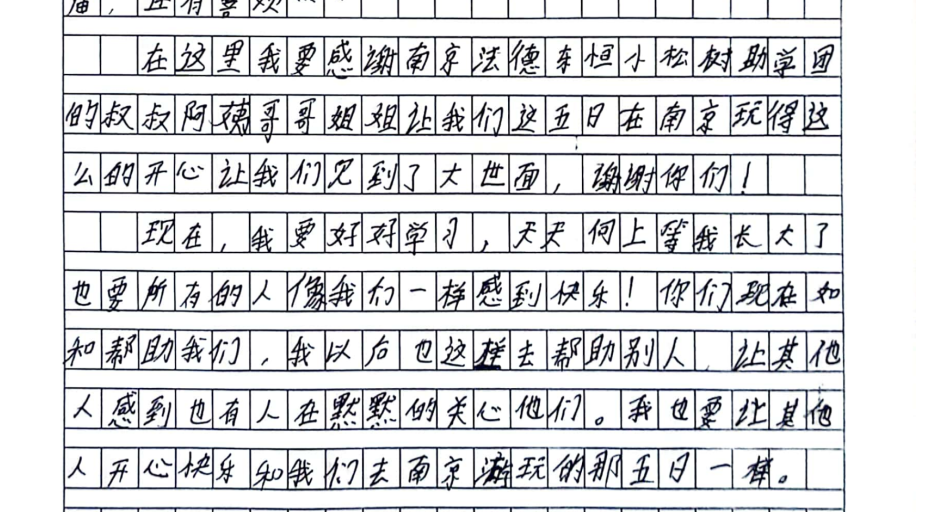 在这里我要感谢南京法德东恒小松树助学团
的叔叔阿姨哥哥姐姐让我们这五日在南京玩得这
么的开心让我们见到了大世面，谢谢你们！
现在，我要好好学习，天天向上等我长大了
也要所有的人像我们一样感到快乐！你们现在如
和帮助我们，我以后也这样去帮助别人，让其他
人感到也有人在默默的关心他们。我也要让其他
人开心快乐和我们去南京游玩的那五日一样。